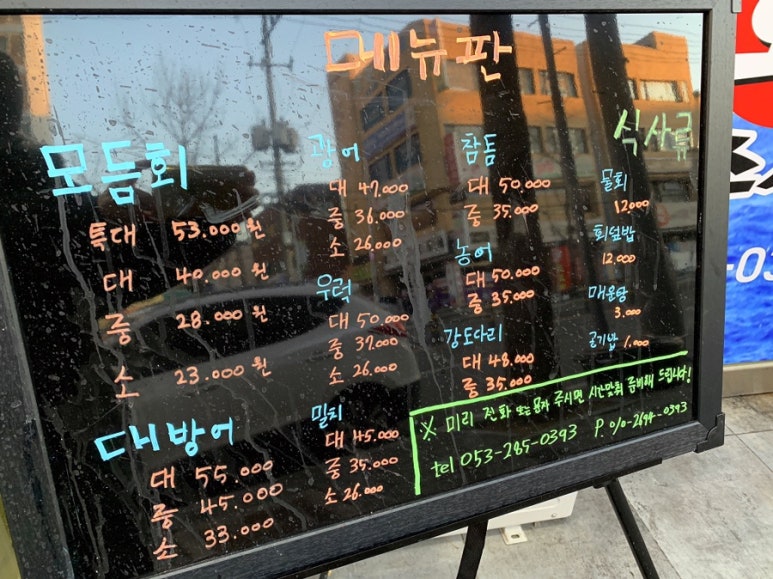 메뉴판
모듬회
특대 53.000원
대 40.000원
중 28.000원
소 23.000원
대방어
대 55.000
중 45.000
소 33.000
광어
대 47.000
중 36.000
소 26.000
우럭
대 50.000
중 37.000
소 26.000
밀치
대 45.000
중 35.000
소 26.000
참돔
대 50.000
중 35.000
농어
대 50.000
중 35.000
강도다리
대 48.000
중 35.000
식사류
물회
12.000
회덮밥
12.000
매운탕
3.000
공기밥 1.000
※ 미리 전화 또는 문자 주시면 시간맞춰 준비해 드립니다!
tel 053-285-0393 P. 010-2694-0393